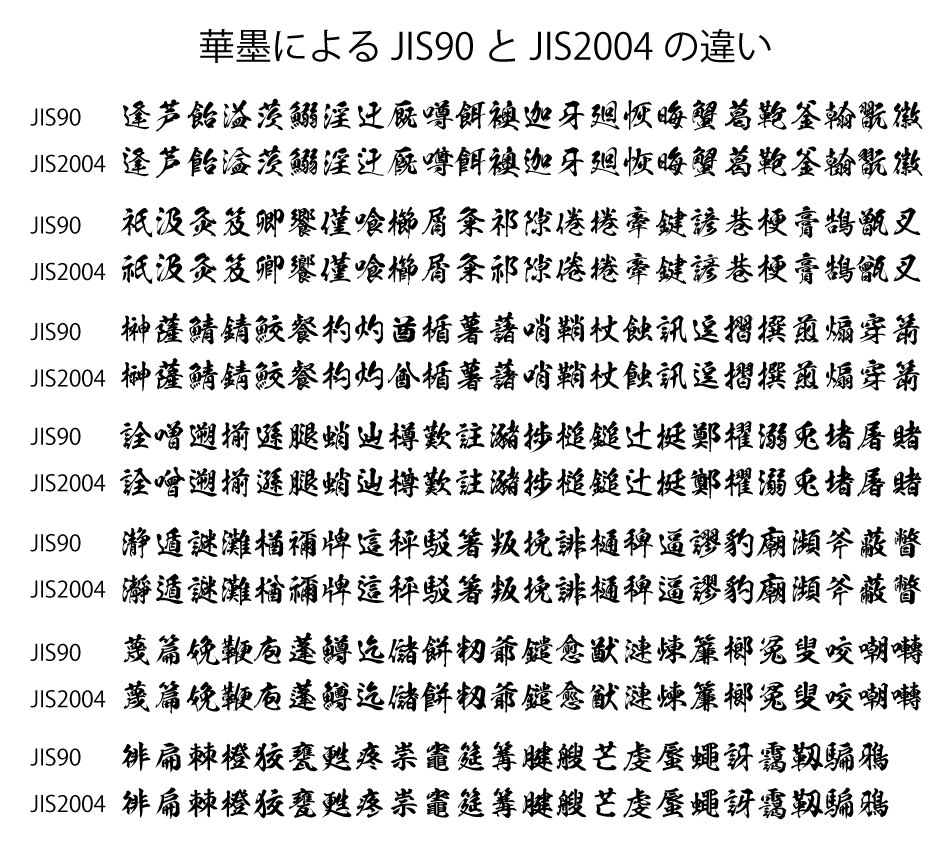 華墨による JIS90 と JIS2004 の違い
JIS90 逢芦飴溢茨鰯淫迂厩噂餌襖迦牙廻恢晦蟹葛鞄釜翰翫徽
JIS2004 逢芦飴溢茨鰯淫迂厩噂餌襖迦牙廻恢晦蟹葛鞄釜翰翫徽
JIS90 祇汲灸笈卿饗僅喰櫛屑粂祁隙倦捲牽鍵諺巷梗膏鵠甑叉
JIS2004 祇汲灸笈卿饗僅喰櫛屑粂祁隙倦捲牽鍵諺巷梗膏鵠甑叉
JIS90 榊薩鯖錆鮫餐杓灼酋楯薯藷哨鞘杖蝕訊逗摺撰煎煽穿箭
JIS2004 榊薩鯖錆鮫餐杓灼酋楯薯藷哨鞘杖蝕訊逗摺撰煎煽穿箭
JIS90 詮噌遡揃遜腿蛸辿樽歎註瀦捗槌鎚辻挺鄭擢溺兎堵屠賭
JIS2004 詮噌遡揃遜腿蛸辿樽歎註瀦捗槌鎚辻挺鄭擢溺兎堵屠賭
JIS90 瀞遁謎灘楢禰牌這秤駁箸叛挽誹樋稗逼謬豹廟瀕斧蔽瞥
JIS2004 瀞遁謎灘楢禰牌這秤駁箸叛挽誹樋稗逼謬豹廟瀕斧蔽瞥
JIS90 蔑篇娩鞭庖蓬鱒迄儲餅籾爺鑓愈猷漣煉簾榔冤叟咬嘲囀
JIS2004 蔑篇娩鞭庖蓬鱒迄儲餅籾爺鑓愈猷漣煉簾榔冤叟咬嘲囀
JIS90 徘扁棘橙狡甕甦疼祟竈筵篝腱艘芒虔蜃蠅訝靄靱騙鴉
JIS2004 徘扁棘橙狡甕甦疼祟竈筵篝腱艘芒虔蜃蠅訝靄靱騙鴉